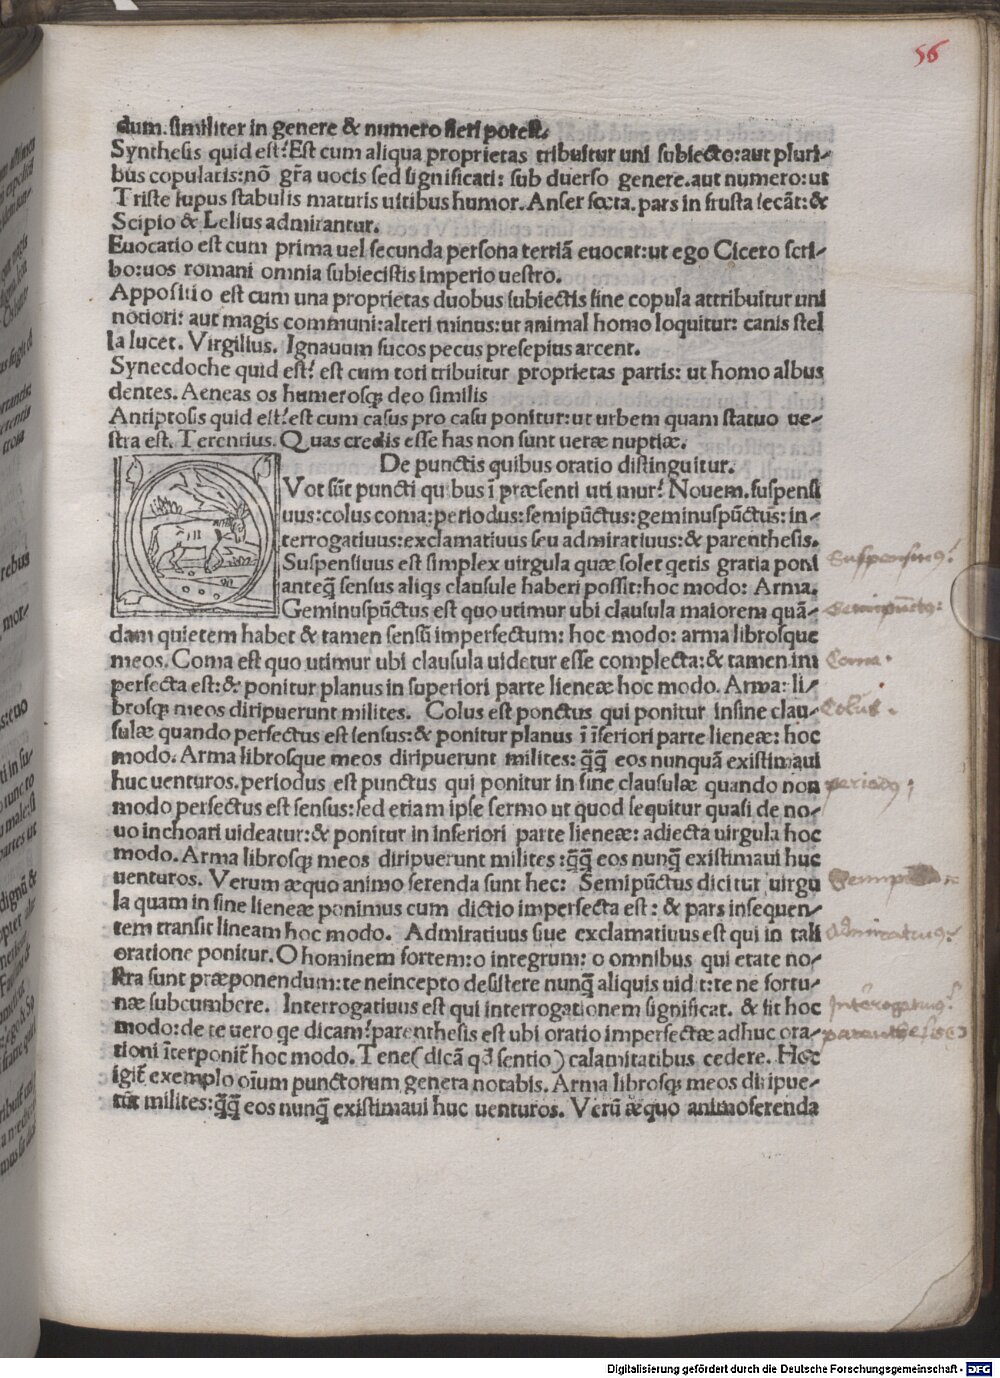 56
dum. similiter in genere & numero fieri potest.
Synthesis quid est? Est cum aliqua proprietas tribuitur uni subiecto: aut pluri-
bus copulatis: nõ gr̃a uocis sed significati: sub duerso genere. aut numero: ut
Triste lupus stabulis maturis uitibus humor. Anser fœta. pars in frusta secãt: &
Scipio & Lelius admirantur.
Euocatio est cum prima uel secunda persona tertiã euocat: ut ego Cicero scri-
bo: uos romani omnia subiecistis imperio uestro.
Appositio est cum una proprietas duobus subiectis sine copula attribuitur uni
notiori: aut magis communi: alteri minus: ut animal homo loquitur: canis stel
la lucet. Virgilius. Ignauum fucos pecus presepius arcent.
Synecdoche quid est? est cum toti tribuitur proprietas partis: ut homo albus
dentes. Aeneas os humerosq; deo similis
Antiptosis quid est? est cum casus pro casu ponitur: ut urbem quam statuo ue-
stra est. Terentius. Quas credis esse has non sunt ueræ nuptiæ.
De punctis quibus oratio distinguitur.
QVot sũt puncti quibus ĩ præsenti uti mur? Nouem. suspensi
uus: colus coma: periodus: semipũctus: geminuspũctus: in-
terrogatiuus: exclamatiuus seu admiratiuus: & parenthesis.
Suspensiuus est simplex uirgula quæ solet qetis gratia poni
anteq̃ sensus aliqs clausule haberi possit: hoc modo: Arma.
Geminuspũctus est quo utimur ubi clausula maiorem quã-
dam quietem habet & tamen sensũ imperfectum: hoc modo: arma librosque
meos. Coma est quo utimur ubi clausula uidetur esse complecta: & tamen im
perfecta est: & ponitur planus in superiori parte lieneæ hoc modo. Arma: li-
brosq; meos diripuerunt milites. Colus est ponctus qui ponitur infine clau-
sulæ quando perfectus est sensus: & ponitur planus ĩ ĩferiori parte lieneæ: hoc
modo. Arma librosque meos diripuerunt milites: q̃q̃ eos nunquã existimaui
huc uenturos. periodus est punctus qui ponitur in fine clausulæ quando non
modo perfectus est sensus: sed etiam ipse sermo ut quod sequitur quasi de no-
uo inchoari uideatur: & ponitur in inferiori parte lieneæ: adiecta uirgula hoc
modo. Arma librosq; meos diripuerunt milites: q̃q̃ eos nunq̃ existimaui huc
uenturos. Verum æquo animo ferenda sunt hec: Semipũctus dicitur uirgu
la quam in fine lieneæ ponimus cum dictio imperfecta est: & pars insequen-
tem transit lineam hoc modo. Admiratiuus siue exclamatiuus est qui in tali
oratione ponitur. O hominem fortem: o integrum: o omnibus qui etate no-
stra sunt præponendum: te neincepto desistere nunq̃ aliquis uidit: te ne fortu-
næ subcumbere. Interrogatiuus est qui interrogationem significat. & fit hoc
modo: de te uero qe dicam? parenthesis est ubi oratio imperfectæ adhuc ora-
tioni ĩterponit̃ hoc modo. Tene (dicã qđ sentio) calamitatibus cedere. Hoc
igit̃ exemplo oĩum punctorum genera notabis. Arma librosq; meos diripue-
rũt milites: q̃q̃ eos nunq̃ existimaui huc uenturos. Verũ æquo animoferenda
Suspensiuus?
Semipũctus:
Coma.
Colus.
periodus;
Admiratiuus?
Interrogatiuus?
parenthesis
Digitalisierung gefördert durch die Deutsche Forschungsgemeinschaft - DFG